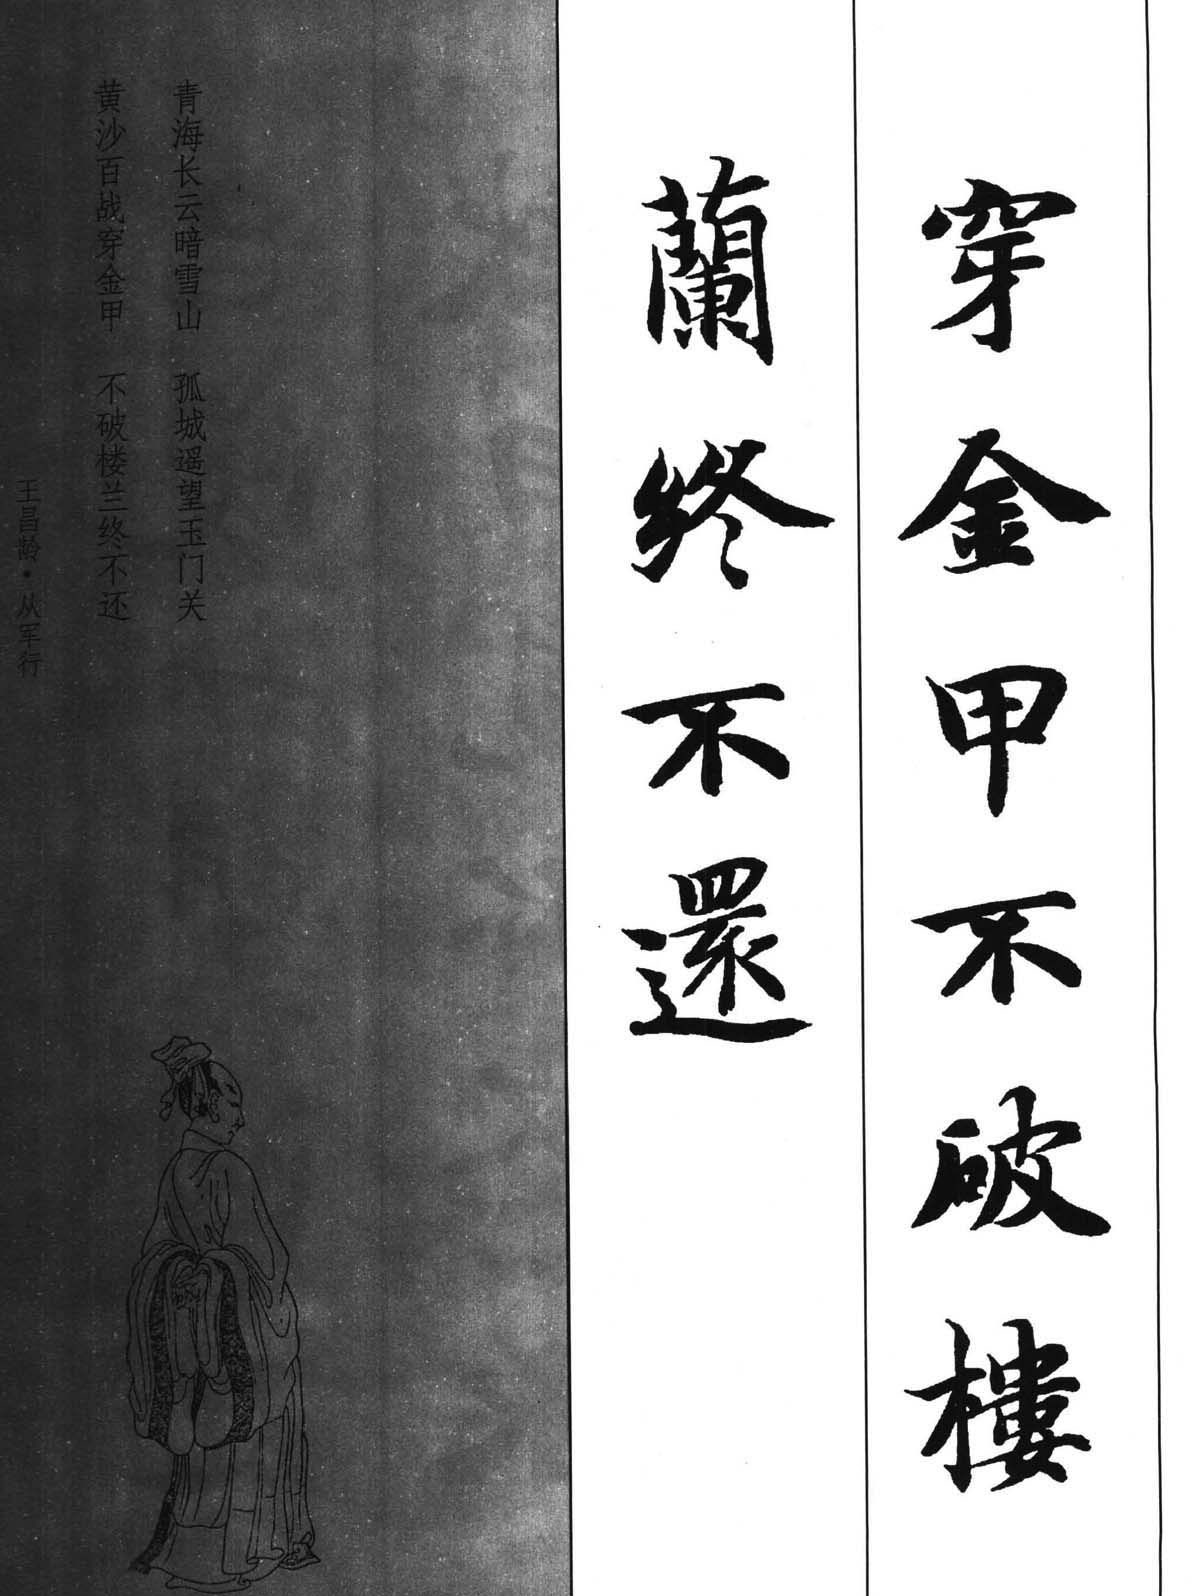 穿金甲不破樓
蘭終不還
青海长云暗雪山　孤城遥望玉门关
黄沙百战穿金甲　不破楼兰终不还
王昌龄·从军行